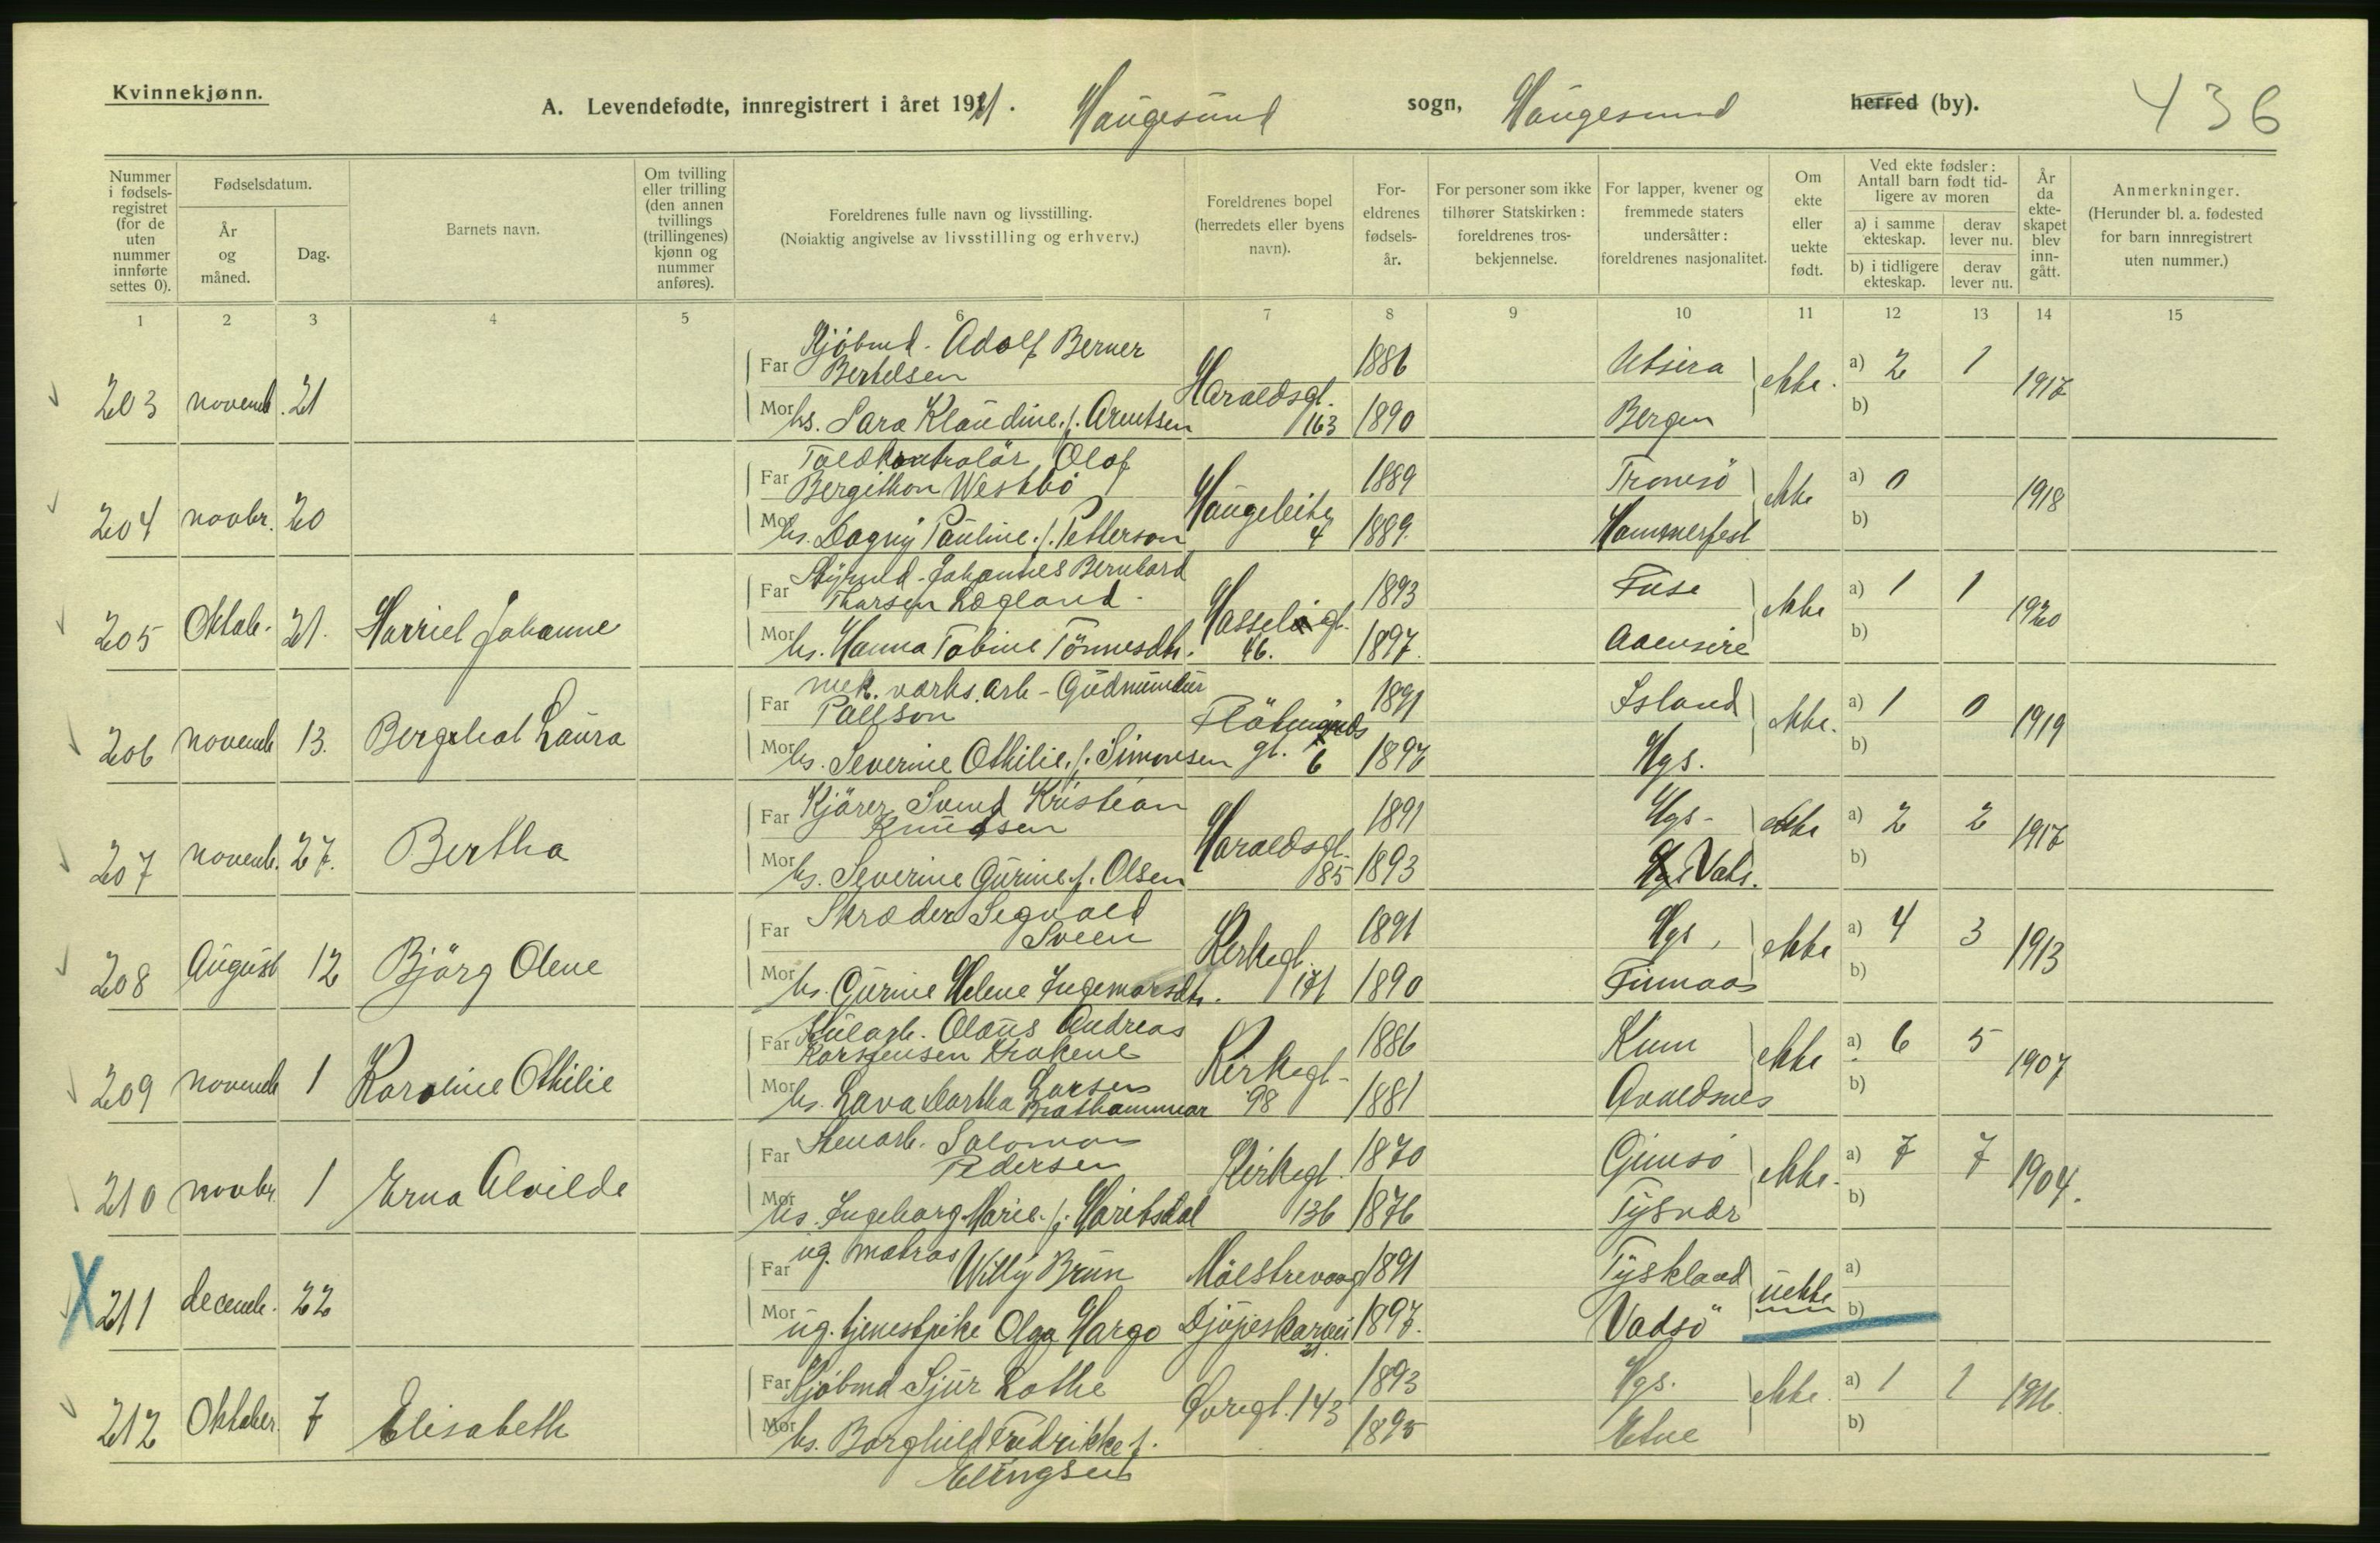 Kvinnekjønn.
A. Levendefødte, innregistrert i året 1921. Haugesund sogn, Haugesund herred (by). 436
Nummer i fødsels-registret (for de uten nummer innførte settes 0).
Fødselsdatum.
År og måned.
Dag.
Barnets navn.
Om tvilling eller trilling (den annen tvillings (trillingenes) kjønn og nummer anføres).
Foreldrenes fulle navn og livsstilling.
(Nøiaktig angivelse av livsstilling og erhverv.)
Foreldrenes bopel (herredets eller byens navn).
For-eldrenes fødsels-år.
For personer som ikke tilhører Statskirken: foreldrenes tros-bekjennelse.
For lapper, kvener og fremmede staters undersåtter: foreldrenes nasjonalitet.
Om ekte eller uekte født.
Ved ekte fødsler: Antall barn født tid-ligere av moren
a) i samme ekteskap.
derav lever nu.
b) i tidligere ekteskap.
derav lever nu.
År da ekte-skapet blev inn-gått.
Anmerkninger.
(Herunder bl. a. fødested for barn innregistrert uten nummer.)
1 2 3 4 5 6 7 8 9 10 11 12 13 14 15
203 novemb. 21
Far Kjöbmd. Adolf Berner
Bertelsen
1886 Utsira
Mor hs. Sara Klaudine f. Arentsen
Haraldsgt. 163 1890 Bergen
ekte. a) 2 1 b) 1917
204 novbr. 20
Far Toldkontrolör Olaf
Bergithon Westbö
1889 Tromsö
Mor hs. Dagny Pauline f. Petterson
Haugeleite 4 1889. Hammerfest
ekte a) 0 b) 1918
205 Oktob. 21. Harriel Johanne
Far Styrmd. Johannes Bernhard
Thorsen Lægland.
1893 Fuse
Mor hs. Hanna Tobine Tönnesdtr.
Hasselgt. 46. 1897. Aaensire
ekte a) 1 1 b) 1920
206 novemb 13. Bergliot Laura
Far mek. værks. arb - Gudmundur
Pallson
1891 Island
Mor hs. Severine Othilie f. Simonsen
gt. 6 1897 Hgs.
ekte. a) 1 0 b) 1919
207 novemb. 27. Bertha
Far Kjörer Svend Kristian
Knudsen
1891 Hgs-
Mor hs. Severine Gurine f. Olsen
Haraldsgt. 85 1893 Vats.
ekte a) 2 2 b) 1917
208 August 12 Björg Olene
Far Skræder Segvald
Sveen
1891 Hgs,
Mor hs. Gurine Helene Ingemarsdtr.
Kirkegt. 171 1890 Finnaas
ekte a) 4 3 b) 1913
209 novemb 1 Karoline Othilie
Far Kularb. Olaus Andreas
Korsnensen Krakene
1886 Kum
Mor hs. Lava Martha Larsen
Brathammar
Kirkegt- 98 1881 Avaldsnes
ekte a) 6 5 b) 1907
210 novbr 1 Erna Alvilde
Far Stenarb. Salomon
Pedersen
1870 Gimsö
Mor hs. Ingeborg Marie f. Maribsdal
Kirkegt. 136 1876 Tysvær
ekte. a) 7 7 b) 1904.
X 211 decemb. 22
Far ug. matros Willy Brun
1891 Tyskland
Mor ug. tjenestpike Olga Hargo
Djupeskarvei 21. 1897. Vadsö
uekte a) b)
212 Oktober. 7 Elisabeth
Far Kjöbmd Sjur Lothe
1893 Hgs.
Mor hs. Borghild Fredrikke f.
Elingsen
Øvregt. 143 1895 Etne
ekte. a) 1 1 b) 1916.